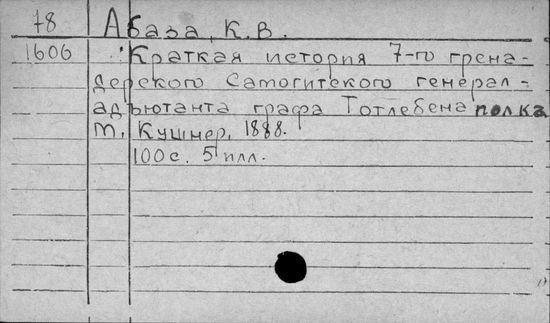 78 Абаза, К.В.
1606 Краткая история 7-го грена-
дерского Самогитского генерал-
адъютанта графа Тотлебена полка
т. Кушнер, 1888.
100с. 5 илл.